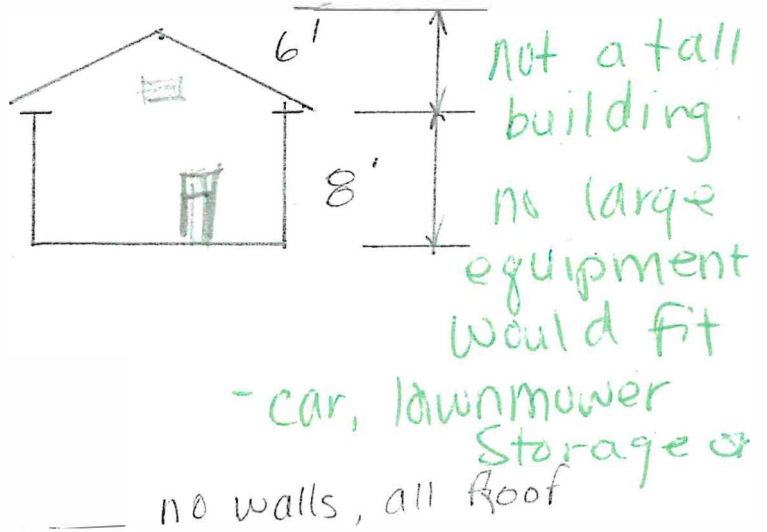 6'
8'
not a tall
building
no large
equipment
would fit
- car, lawnmower
storage or
no walls, all roof